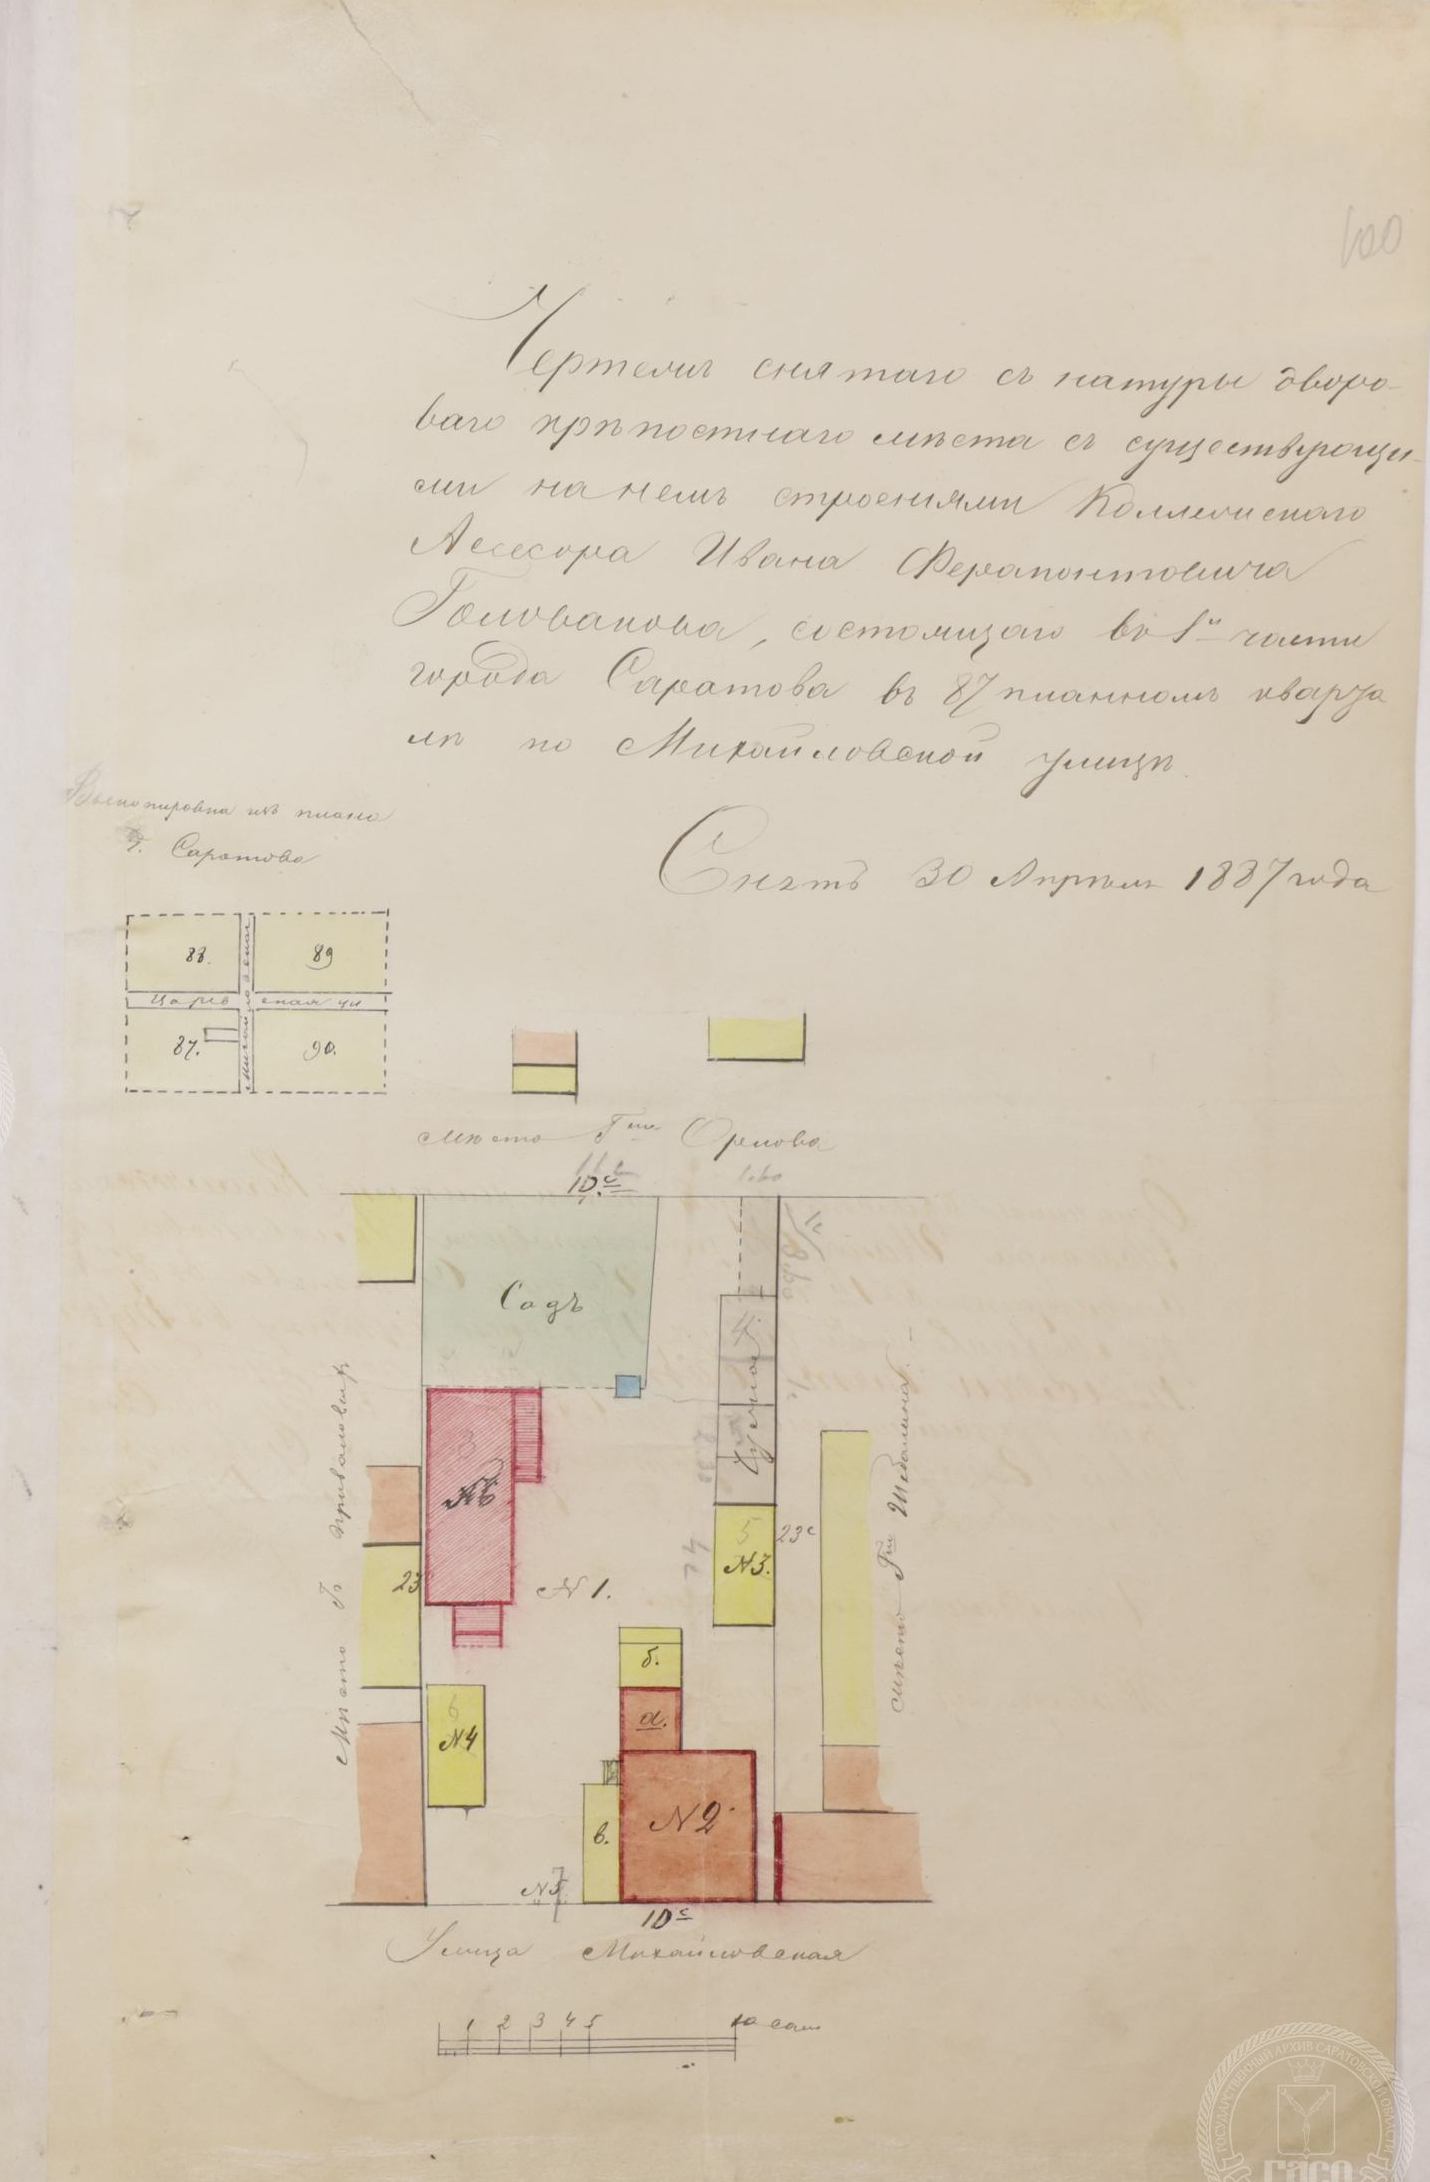 100
Чертежъ снятаго съ натуры дворо-
ваго крѣпостнаго мѣста съ существующи-
ми на немъ строеніями Коллежскаго
Асессора Ивана Ферапонтовича
Голованова, состоящаго во 1й части
города Саратова въ 87 планномъ кварта
лѣ по Михайловской улицѣ.
Снятъ 30 Апрѣля 1887 года
Выкопировка изъ плана
Г. Саратова
88.
89
Царев
ская ул
Михайловская
87.
90.
мѣсто Гна Орлова
10.с
1.60
Садъ
4.
А6
5
N3.
23с
23
N 1.
4с
б.
а.
6
N4
N 2.
в.
N5
10с
Мѣсто Г
мѣсто Гна Шебалина
Улица Михайловская
1 2 3 4 5 10 саж
ГОСУДАРСТВЕННЫЙ АРХИВ САРАТОВСКОЙ ОБЛАСТИ
ГАСО